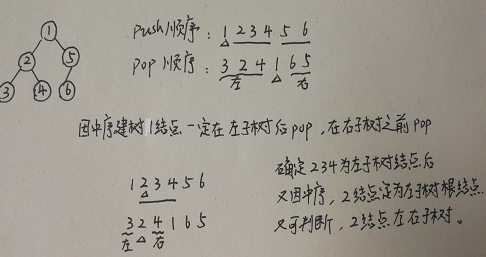 1
Push顺序：1 2 3 4 5 6
2
5
Pop顺序：3 2 4 1 6 5
3
4
6
左
右
因中序建树1结点一定在左子树后pop，在右子树之前pop
确定234为左子树结点后
1 2 3 4 5 6
又因中序，2结点定为左子树根结点.
3 2 4 1 6 5
又可判断，2结点左右子树。
左
右